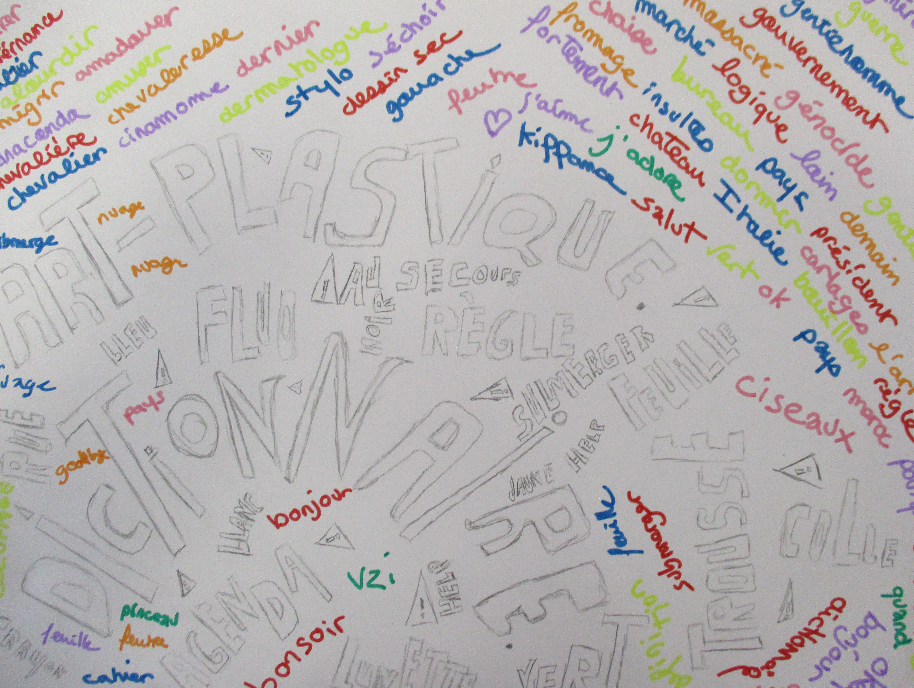 alourdir
amadouer
amuser
chevaleresse
dernier
cinamome
dermatologue
séchoir
stylo
dessin sec
gouache
feutre
chevalier
j'aime
kiffance
j'adore
salut
fromage
portement
chaise
marché
massacré
gouvernement
gendarmme
guerre
bureau
logique
génocide
insultes
chateau
pays
lain
dormir
Italie
demain
président
cartages
bouillon
vert
ok
pays
maroc
ciseaux
nuage
nuage
ART-PLASTIQUE.
AAU SECOURS
NOIR
FLUO
RÈGLE
BLEU
SUBMERGER
FEUILLE
pays
DICTIONNAIRE.
JAUNE
HELP
TROUSSE
COLLE
bonjour
feuille
submerger
VZi
HELP
AGENDA
pinceau
feuille
feutre
cahier
CRAYON
bonsoir
LUNETTE
VERT
définition
dictionnaire
quand
bonjour
ok